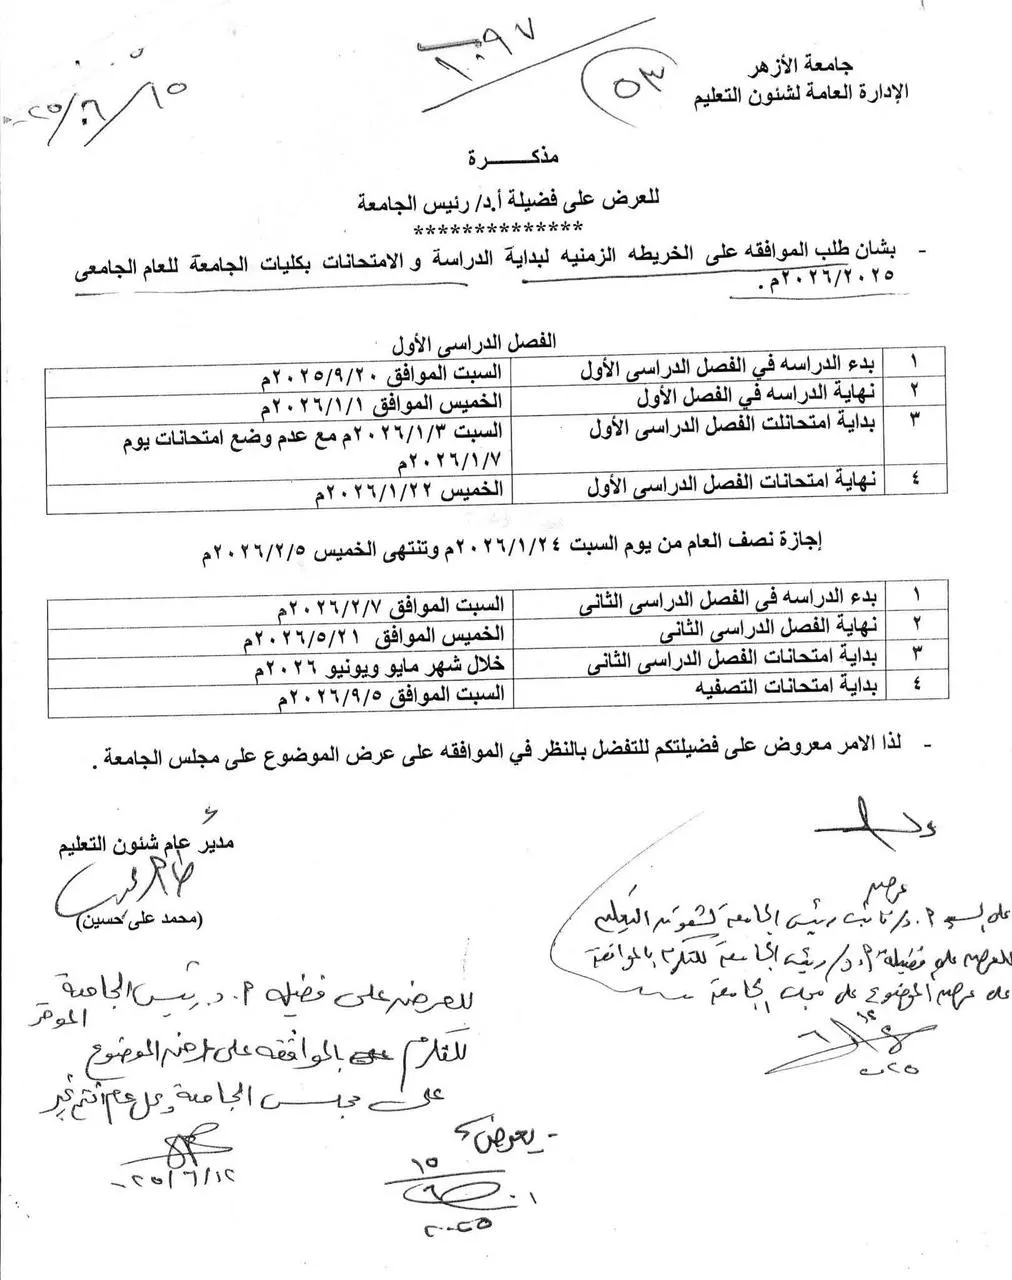 ١٠٩٧
٥٣
٢٠٢٥/٦/١٥
جامعة الأزهر
الإدارة العامة لشئون التعليم
مذكـــــــرة
للعرض على فضيلة أ.د/ رئيس الجامعة
**************
- بشان طلب الموافقه على الخريطه الزمنيه لبداية الدراسة و الامتحانات بكليات الجامعة للعام الجامعى
٢٠٢٦/٢٠٢٥م.
الفصل الدراسى الأول
١ بدء الدراسه في الفصل الدراسى الأول السبت الموافق ٢٠٢٥/٩/٢٠م
٢ نهاية الدراسه في الفصل الأول الخميس الموافق ٢٠٢٦/١/١م
٣ بداية امتحانلت الفصل الدراسى الأول السبت ٢٠٢٦/١/٣م مع عدم وضع امتحانات يوم
٢٠٢٦/١/٧م
٤ نهاية امتحانات الفصل الدراسى الأول الخميس ٢٠٢٦/١/٢٢م
إجازة نصف العام من يوم السبت ٢٠٢٦/١/٢٤م وتنتهى الخميس ٢٠٢٦/٢/٥م
١ بدء الدراسه فى الفصل الدراسى الثانى السبت الموافق ٢٠٢٦/٢/٧م
٢ نهاية الفصل الدراسى الثانى الخميس الموافق ٢٠٢٦/٥/٢١م
٣ بداية امتحانات الفصل الدراسى الثانى خلال شهر مايو ويونيو ٢٠٢٦م
٤ بداية امتحانات التصفيه السبت الموافق ٢٠٢٦/٩/٥م
- لذا الامر معروض على فضيلتكم للتفضل بالنظر في الموافقه على عرض الموضوع على مجلس الجامعة .
مدير عام شئون التعليم
(محمد على حسين)
عرض
على السيد أ.د/ نائب رئيس الجامعة لشئون التعليم
للعرض على فضيلة أ.د/ رئيس الجامعة للتكرم بالموافقة
على عرض الموضوع على مجلس الجامعة
للعرض على فضيلة أ.د رئيس الجامعة
الموقر
للتكرم بالموافقة على عرض الموضوع
على مجلس الجامعة وكل عام أنتم بخير
٢٠٢٥/٦/١٢
- يعرض
١٥
٦
٢٠٢٥